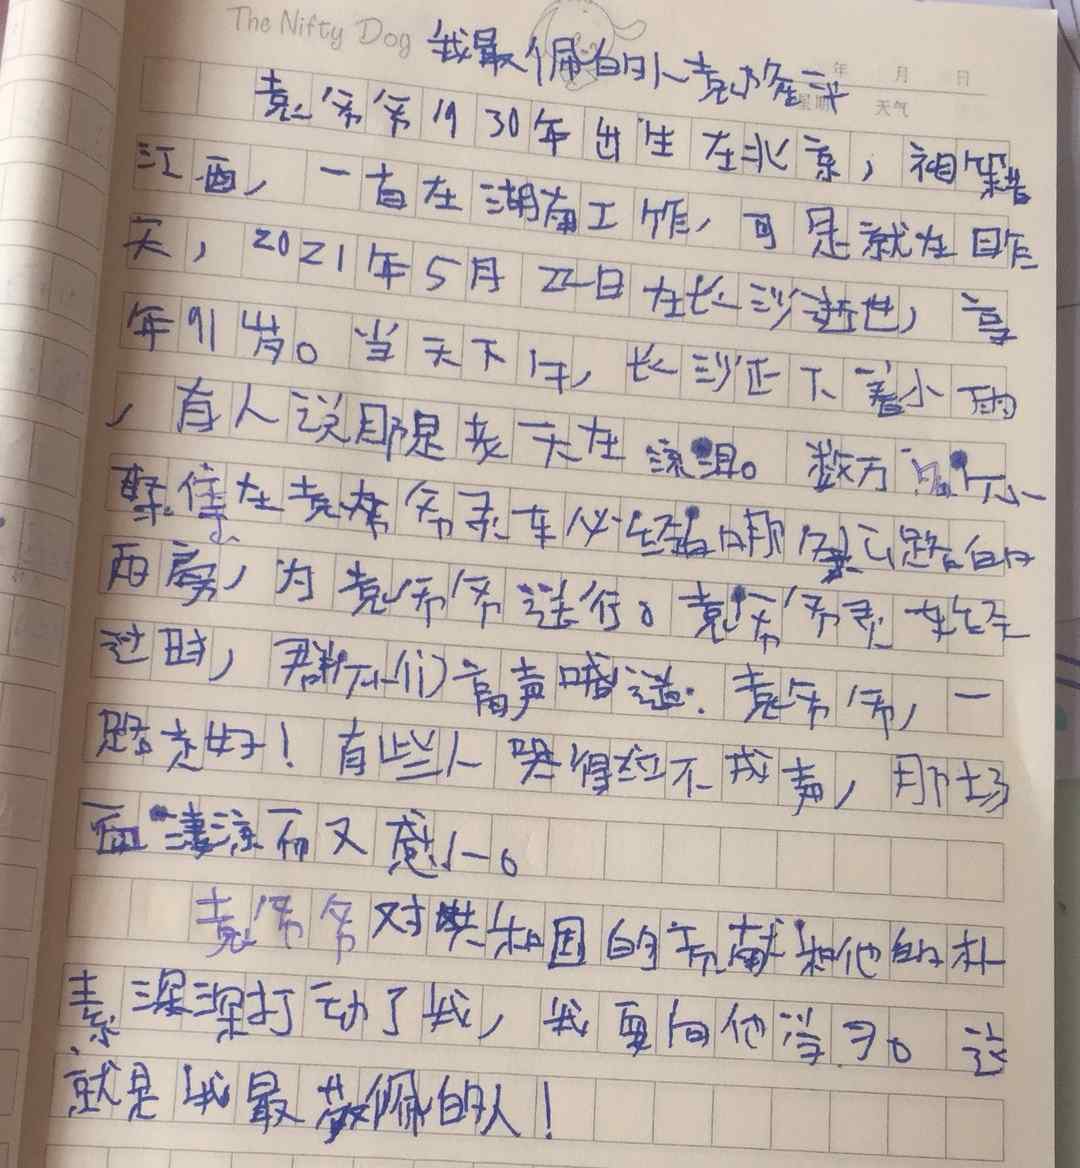 The Nifty Dog
我最佩的人袁隆平
年 月 日
星期 天气
袁爷爷1930年出生在北京，祖籍
江西，一直在湖南工作，可是就在昨
天，2021年5月22日在长沙逝世，享
年91岁。当天下午，长沙正下着小雨
，有人说那是老天在流泪。数万
聚集在袁爷爷灵车必经的那条公路的
两旁，为袁爷爷送行。袁爷爷灵车经
过时，群众们高声喊道：袁爷爷，一
路走好！有些人哭得泣不成声，那场
面凄凉而又感人。
袁爷爷对共和国的贡献和他的朴
素深深打动了我，我要向他学习。这
就是我最敬佩的人！